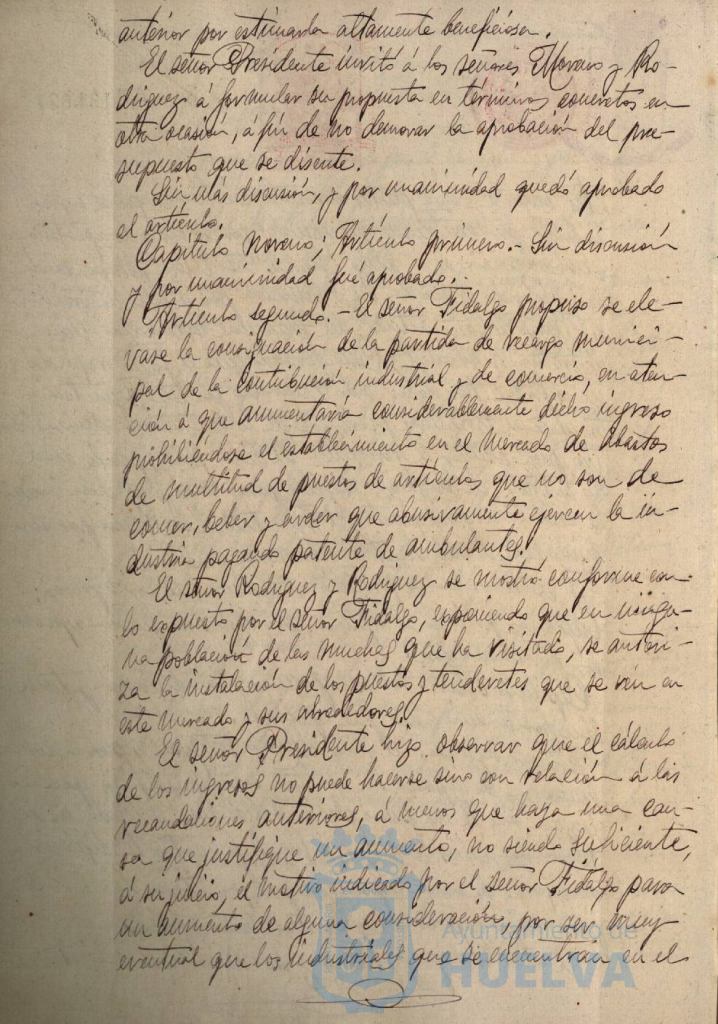 anterior por estimarla altamente beneficiosa.
El señor Presidente invitó á los señores Moreno y Ro-
driguez á formular su propuesta en términos concretos en
otra ocasión, á fin de no demorar la aprobación del pre-
supuesto que se discute.
Sin más discusión, y por unanimidad quedó aprobado
el artículo.
Capítulo noveno; Artículo primero.- Sin discusión
y por unanimidad fué aprobado.
Artículo segundo.- El señor Fidalgo propuso se ele-
vase la consignación de la partida de recargo munici-
pal de la contribución industrial y de comercio, en aten-
ción á que aumentaría considerablemente dicho ingreso
prohibiéndose el establecimiento en el Mercado de Abastos
de multitud de puestos de artículos que no son de
comer, beber y arder que abusivamente ejercen la in-
dustria pagando patente de ambulantes.
El señor Rodriguez y Rodriguez se mostró conforme con
lo expuesto por el señor Fidalgo, exponiendo que en ningu-
na población de las muchas que ha visitado, se autori-
za la instalación de los puestos y tenderetes que se ven en
este mercado y sus alrededores.
El señor Presidente hizo observar que el cálculo
de los ingresos no puede hacerse sino con relación á las
recaudaciones anteriores, á menos que haya una cau-
sa que justifique un aumento, no siendo suficiente,
á su juicio, el motivo indicado por el señor Fidalgo para
un aumento de alguna consideración, por ser muy
eventual que los industriales que se encuentran en el
Ayuntamiento de
HUELVA